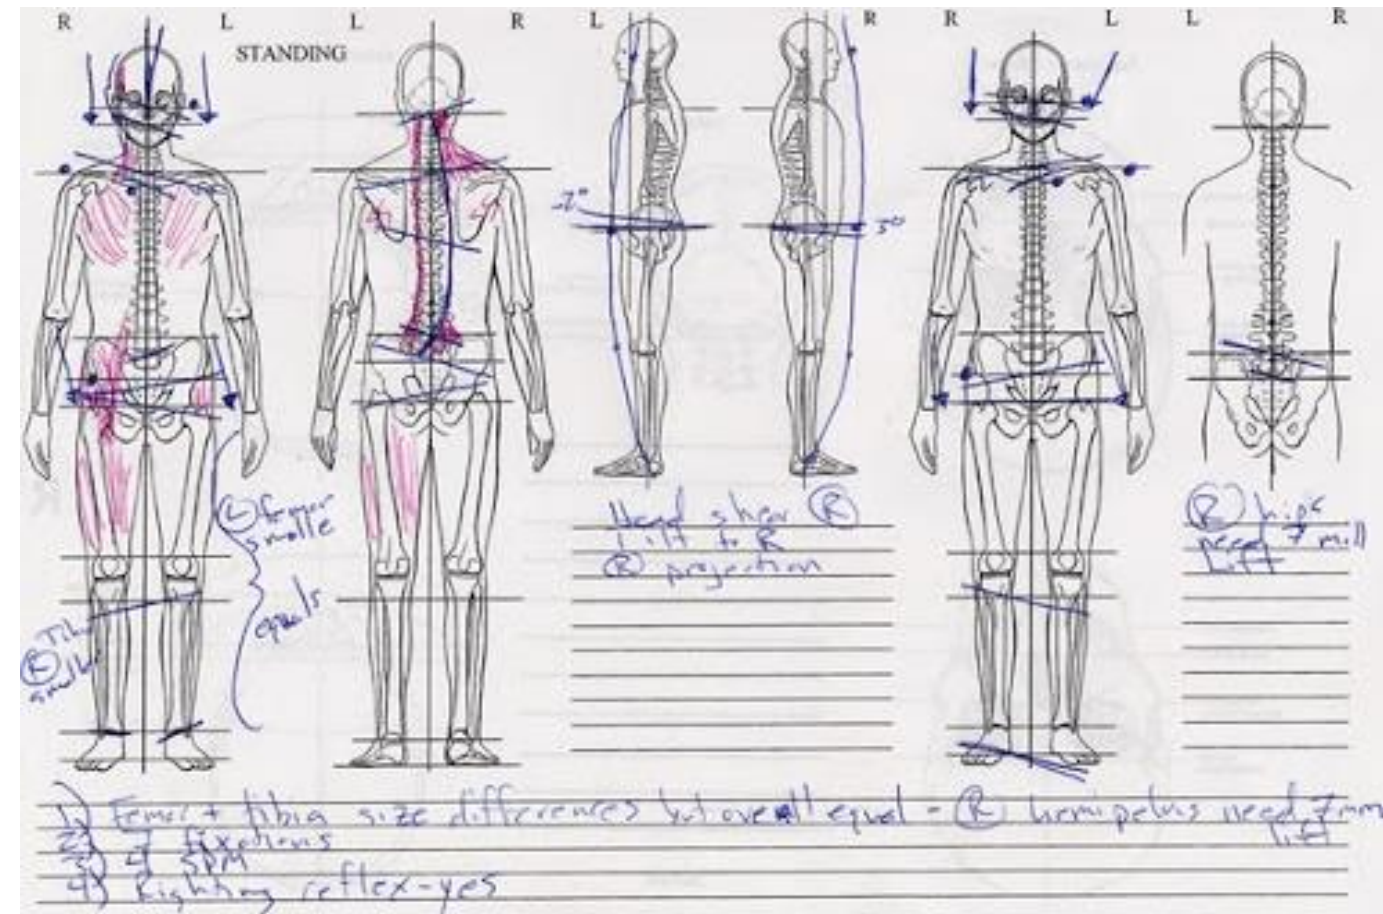 R L L R L R R L L R
STANDING
7°
5°
(L) femur
smalle
equals
(R) Tib
smaller
Head shear (R)
tilt to R
(R) projection
(R) hips
need 7 mill
lift
1) Femur + tibia size differences but overall equal - (R) hemipelvis need 7mm
lift
2) 7 fixations
3) 4 SPM
4) Righting reflex-yes